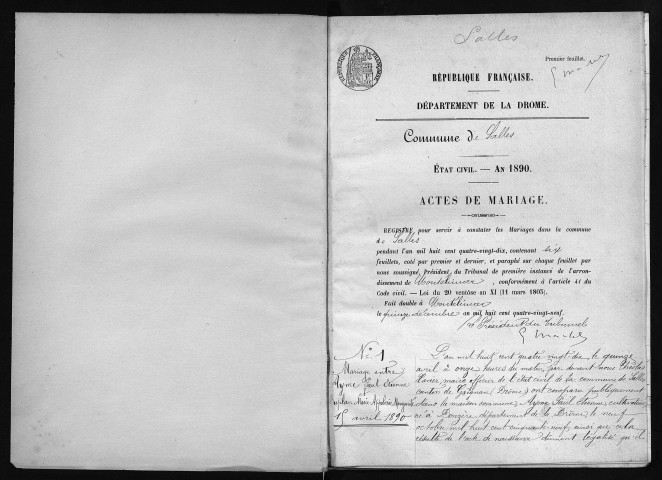 Salles
Premier feuillet.
RÉPUBLIQUE FRANÇAISE.
DÉPARTEMENT DE LA DROME.
Commune de Salles
ÉTAT CIVIL. — AN 1890.
ACTES DE MARIAGE.
REGISTRE pour servir à constater les Mariages dans la commune
de Salles
pendant l'an mil huit cent quatre-vingt-dix, contenant six
feuillets, coté par premier et dernier, et paraphé sur chaque feuillet par
nous soussigné, Président du Tribunal de première instance de l'arron-
dissement de Montélimar, conformément à l'article 41 du
Code civil. — Loi du 20 ventôse an XI (11 mars 1803).
Fait double à Montélimar
le quinze décembre an mil huit cent quatre-vingt-neuf.
Président du Tribunal
N° 1
Mariage entre
Ayme Paul Etienne
15 avril 1890
L'an mil huit cent quatre vingt dix le quinze
avril à onze heures du matin par devant nous
maire officier de l'état civil de la commune de Salles
canton de Grignan (Drôme) ont comparu publiquement
dans la maison commune Ayme Paul Etienne cultivateur
né à département de la Drôme le neuf
octobre mil huit cent cinquante neuf ainsi que cela
résulte de l'acte de naissance dûment légalisé